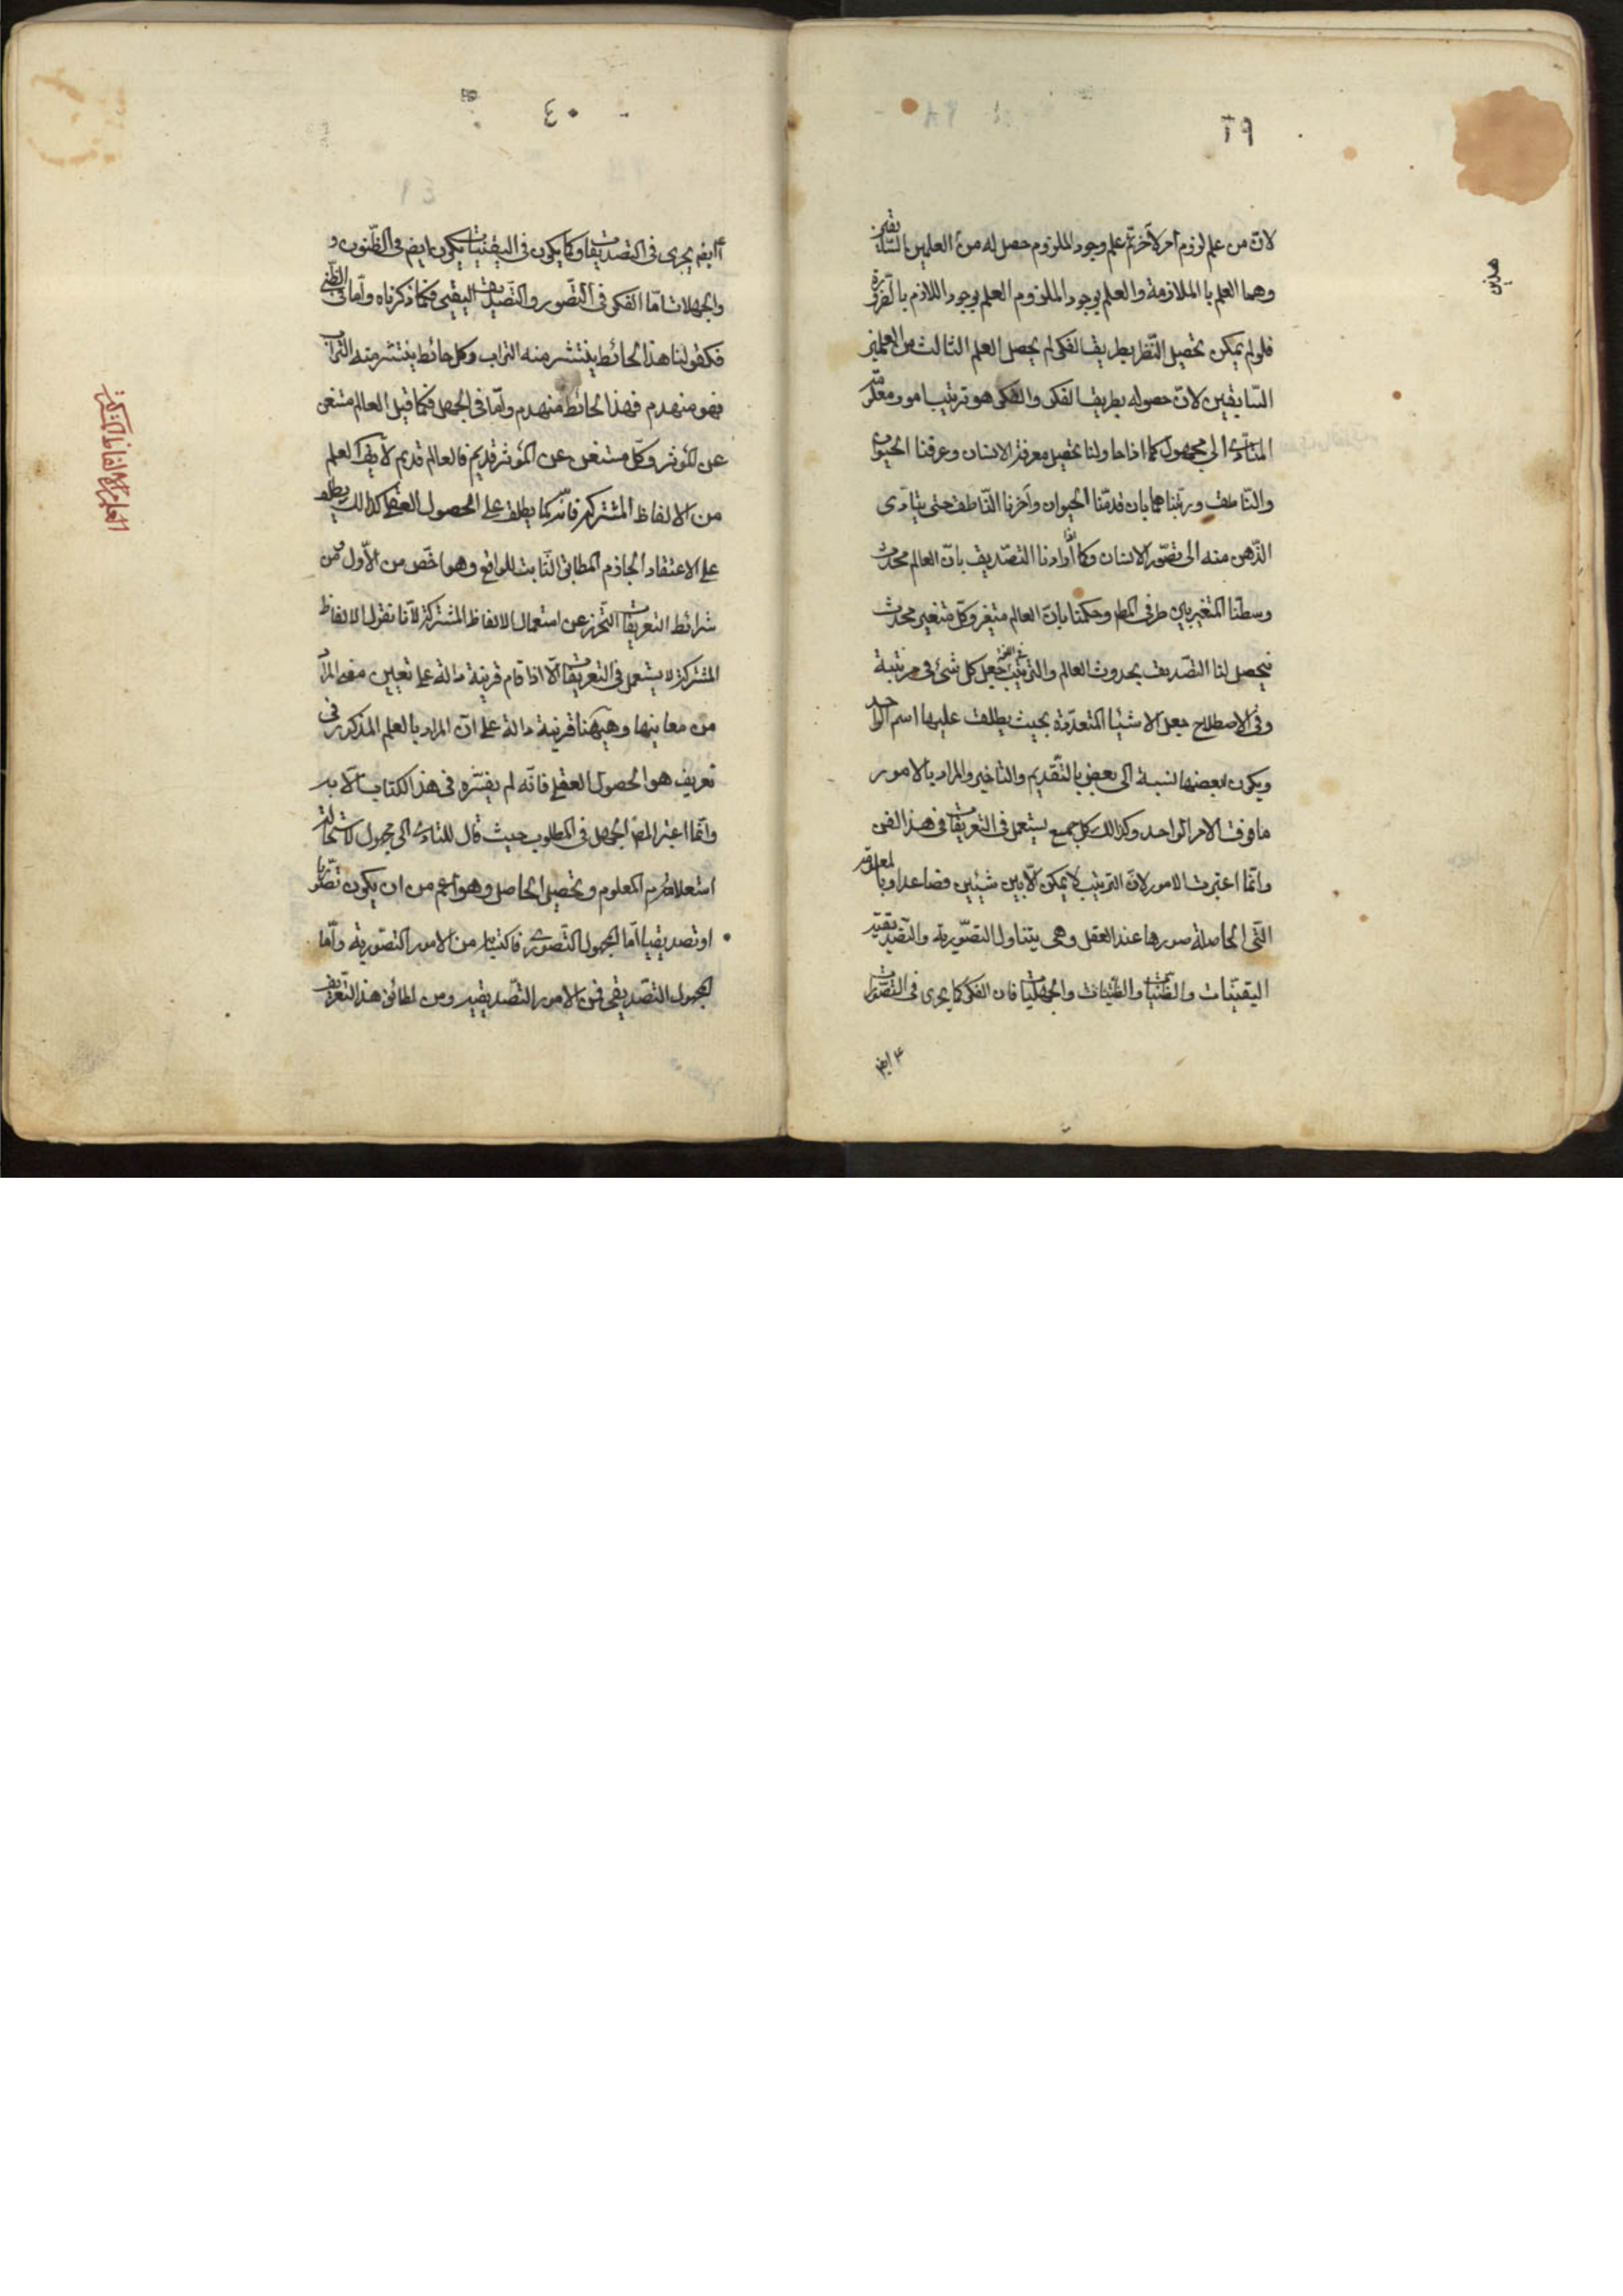 ٣٩
لانّ من علم لزوم امر لآخر ثم علم وجود الملزوم حصل له من العلمين السابقين
وهما العلم بالملازمة والعلم بوجود الملزوم العلم بوجود اللازم بالضرورة
فلو لم يمكن تحصيل النّظر بطريق الفكر لم يحصل العلم الثالث من العلمين
السّابقين لانّ حصوله بطريق الفكر والفكر هو ترتيب امور معلومة
المتأدّى الى مجهول كما اذا حاولنا تحصيل معرفة الانسان وعرفنا الحيوان
والنّاطق ورتبناهما بان قدمنا الحيوان وأخرنا النّاطق حتى يتادّى
الذّهن منه الى تصّور الانسان وكما اذا أرادنا التصّديق بانّ العالم محدث
وسطنا المتغير بين طرفى المط وحكمنا بانّ العالم متغير وكلّ متغير محدث
فيحصل لنا التصّديق بحدوث العالم والترتيب فى اللغة جعل كل شئ فى مرتبة
وفى الاصطلاح جعل الاشيا المتعدّدة بحيث يطلق عليها اسم الواحد
ويكون لبعضها نسبة الى بعض بالتّقديم والتاخير والمراد بالامور
ما فوق الامر الواحد وكذالك كل جميع يستعمل فى التعريفات فى هذا الفن
وانّما اعتبرت الامور لانّ الترتيب لا يمكن الّا بين شيئين فصاعدا وبالمعلومة
التّى الحاصلة صورها عند العقل وهى يتناول التصّورية والتصديقيّة
اليقينّات والظنّيات والجهليات فان الفكر كما يجرى فى التصّورات
ايض
هذين
٤٠
ايض يجرى فى التصديقات وكما يكون فى اليقينيات يكون ايض فى الظّنون و
والجهلات امّا الفكر فى التّصور والتّصديق اليقينى فكما ذكرناه وامّا فى الظنّى
فكقولنا هذا الحائط ينتشر منه التراب وكل حائط ينتشر منه التراب
فهو منهدم فهذا الحائط منهدم وامّا فى الجهل فكما قيل العالم مستغن
عن المؤثر وكلّ مستغن عن المؤثر قديم فالعالم قديم لا يق العلم
من الالفاظ المشتركة فانّه كما يطلق على الحصول العقلى كذالك يطلق
على الاعتقاد الجازم المطابق الثّابت للواقع وهو اخّص من الأوّل ومن
شرائط التعريفات التّحرز عن استعمال الالفاظ المشتركة لانّا نقول الالفاظ
المشتركة لا يستعمل فى التعريفات الّا اذا قام قرينة دالة على تعيين معه المراد
من معانيها وهيهنا قرينة دالة على انّ المراد بالعلم المذكور فى
تعريف هو الحصول العقلى فانّه لم يفسّره فى هذا الكتاب الّا به
وانّما اعتبر المص الجهل فى المطلوب حيث قال للتادّى الى مجهول لاستحالة
استعلام المعلوم وتحصيل الحاصل وهو اعم من ان يكون تصّوريا
او تصديقيا امّا المجهول التّصورى فاكتسابه من الامور التصّورية وامّا
المجهول التصّديقى فمن الامور التّصديقيه ومن لطائف هذا التّعريف
العلم من الالفاظ المشتركة